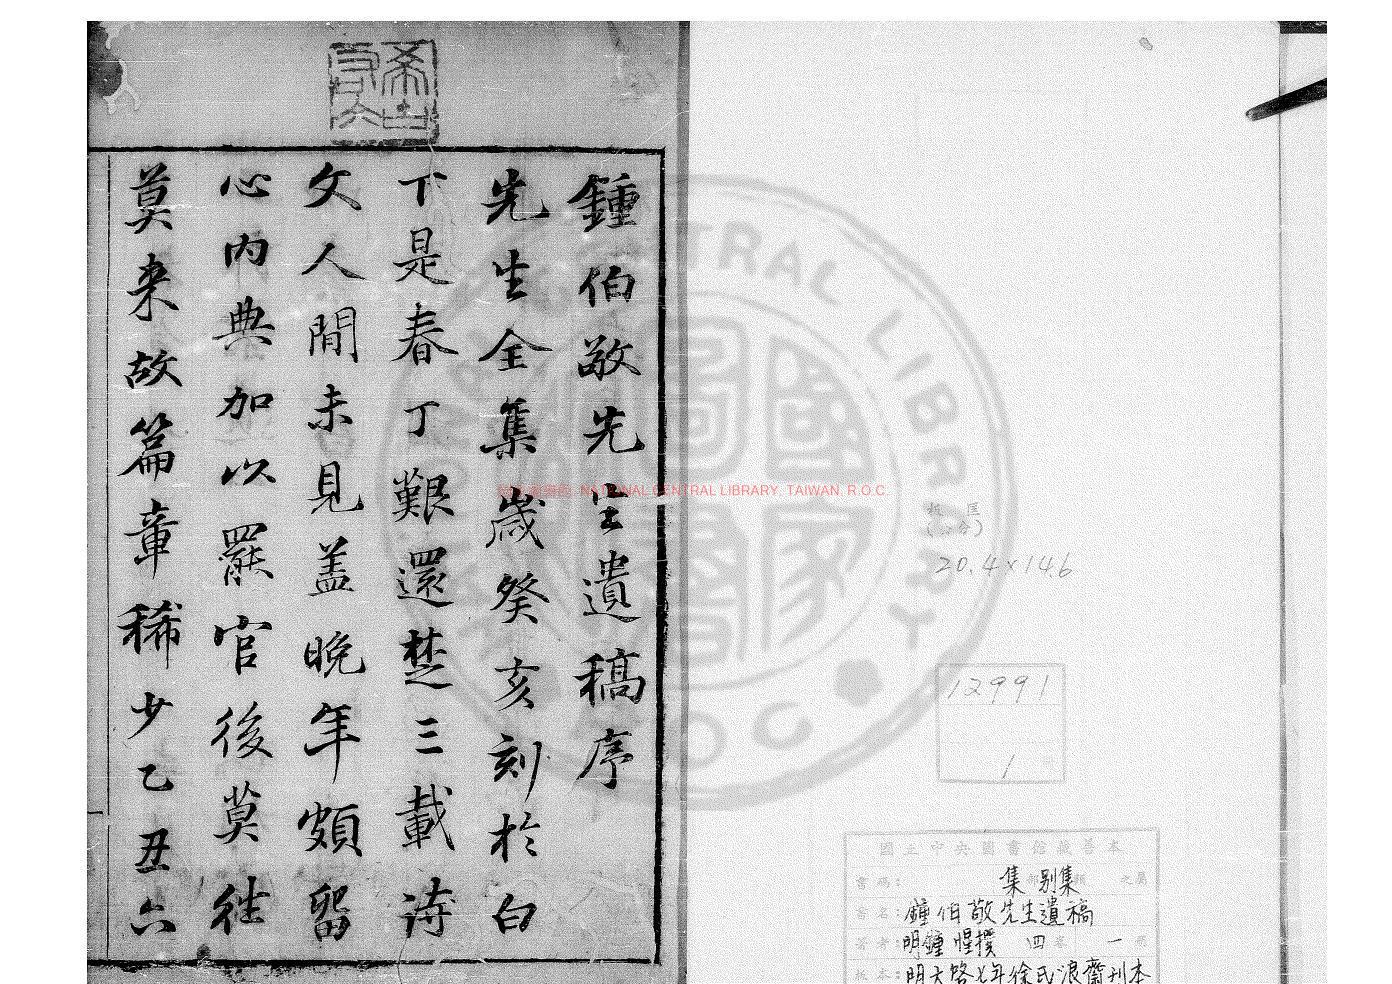 鍾伯敬先生遺稿序
先生全集歲癸亥刻於白
下是春丁艱還楚三載詩
文人間未見盖晚年頗留
心內典加以罷官後莫往
莫来故篇章稀少乙丑六
NATIONAL CENTRAL LIBRARY, TAIWAN, R.O.C
20.4×14.6
12991
1
國立中央圖書館藏善本
書碼: 集部 别集類 之屬
書名: 鍾伯敬先生遺稿
著者: 明鍾惺撰 四卷 一冊
板本: 明天啓七年徐氏浪齋刊本